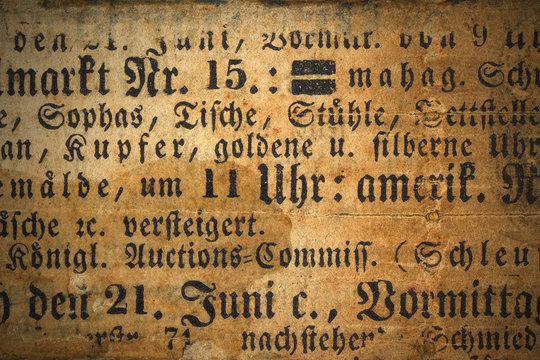 den 21. Juni, Vormitt. von 9 Uh
lmarkt Nr. 15.: = mahag. Schr
e, Sophas, Tische, Stühle, Bettstelle
an, Kupfer, goldene u. silberne Uhr
emälde, um 11 Uhr: amerik. N
äsche ꝛc. versteigert.
Königl. Auctions=Commiss. (Schleu
den 21. Juni c., Vormitta
71 nachstehen Schmied